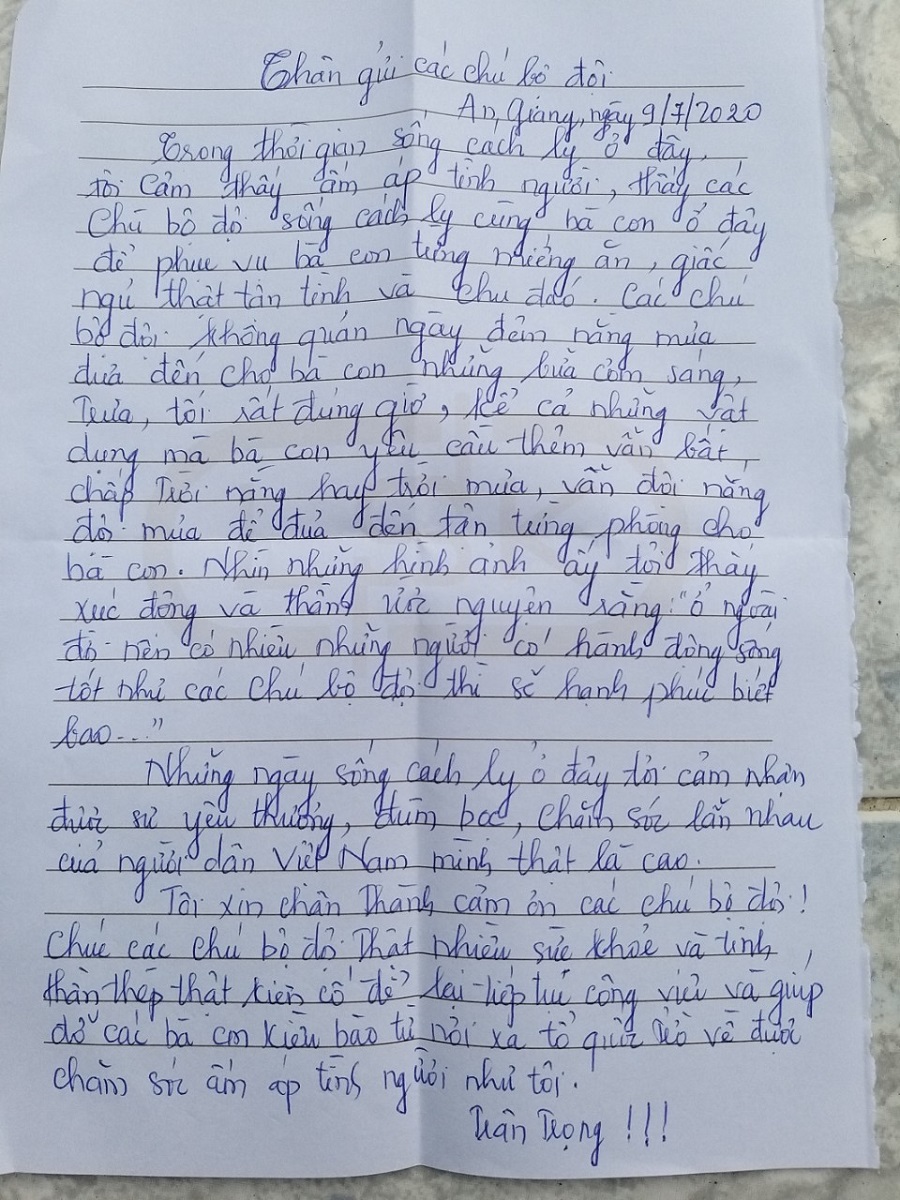 Thân gửi các chú bộ đội
An Giang, ngày 9/7/2020
Trong thời gian sống cách ly ở đây,
tôi cảm thấy ấm áp tình người, thấy các
Chú bộ đội sống cách ly cùng bà con ở đây
để phục vụ bà con từng miếng ăn, giấc
ngủ thật tận tình và chu đáo. Các chú
bộ đội không quản ngày đêm nắng mưa
đưa đến cho bà con những bữa cơm sáng,
Trưa, tối rất đúng giờ, kể cả những vật
dụng mà bà con yêu cầu thêm vẫn bất
chấp Trời nắng hay trời mưa, vẫn đội nắng
đội mưa để đưa đến tận từng phòng cho
bà con. Nhìn những hình ảnh ấy tôi thấy
xúc động và thầm ước nguyện rằng: "ở ngoài
đó nên có nhiều những người có hành động sống
tốt như các chú bộ đội thì sẽ hạnh phúc biết
bao..."
Những ngày sống cách ly ở đây tôi cảm nhận
được sự yêu thương, đùm bọc, chăm sóc lẫn nhau
của người dân Việt Nam mình thật là cao.
Tôi xin chân Thành cảm ơn các chú bộ đội!
Chúc các chú bộ đội Thật nhiều sức khoẻ và tinh
thần thép thật kiên cố để lại tiếp tục công việc và giúp
đỡ các bà con kiều bào từ nơi xa tổ quốc về được
chăm sóc ấm áp tình người như tôi.
Trân Trọng !!!